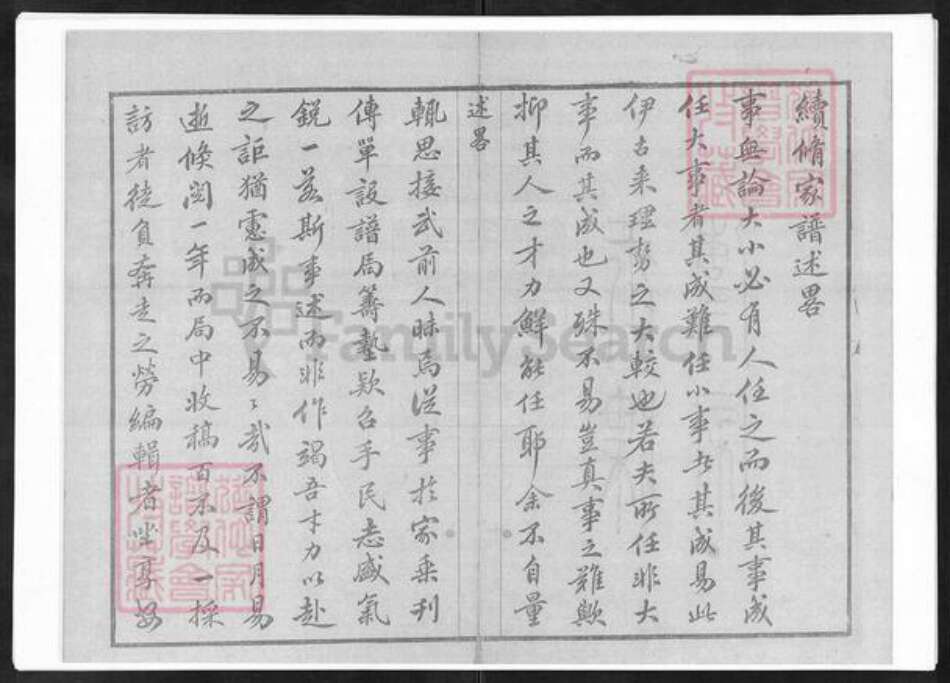 續脩家譜述畧
事無論大小必有人任之而後其事成
任大事者其成難任小事者其成易此
伊古來理勢之大較也若夫所任非大
事而其成也又殊不易豈真事之難歟
抑其人之才力鮮能任耶余不自量
述畧
輒思接武前人昧焉從事於家乘刊
傳單設譜局籌墊款召手民志盛氣
銳一若斯事述而非作竭吾才力以赴
之詎猶憲成之不易〻哉不謂日月易
逝倏閱一年而局中收稿百不及一採
訪者徒負奔走之勞編輯者坐享安
FamilySearch